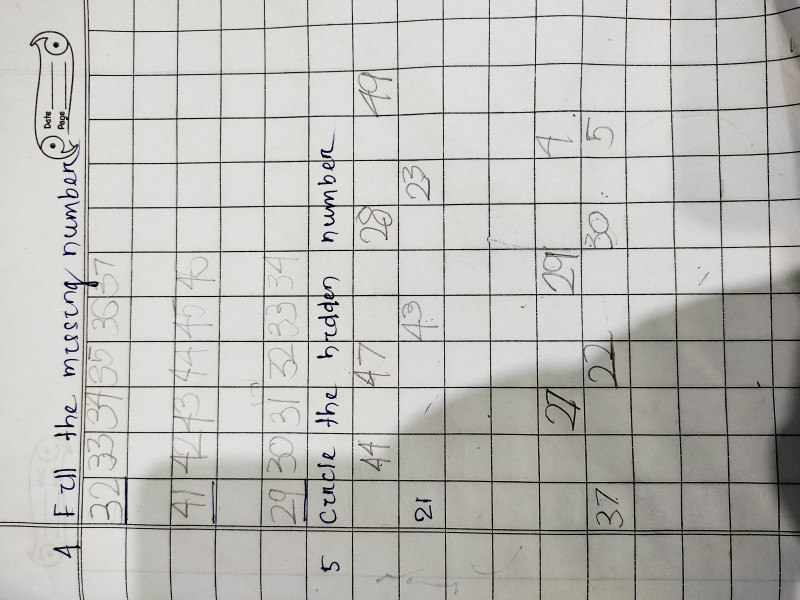 Date
Page
4 Fill the missing number
32 33 34 35 36 37
41 42 43 44 45 46
29 30 31 32 33 34
5 Circle the hidden number
44 47 28 49
21 43 23
27 29 4
37 22 30 5